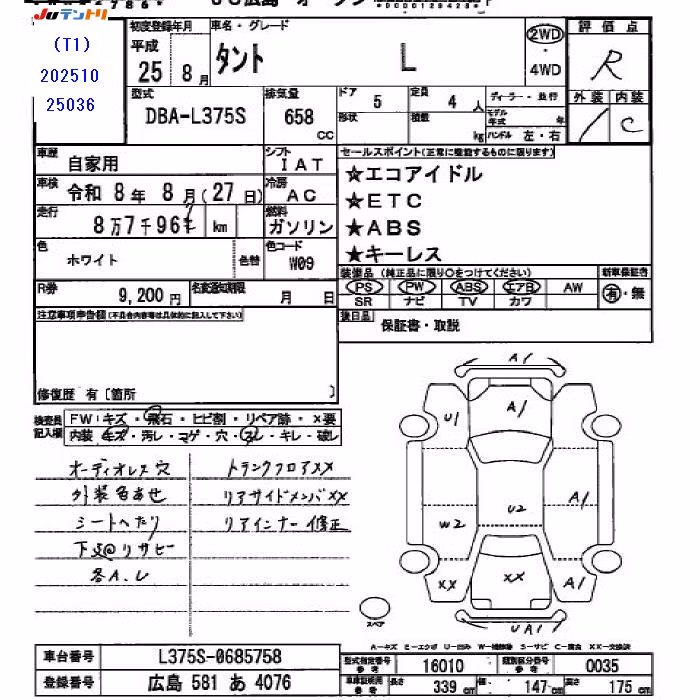 JUテントリ
(T1)
202510
25036
初度登録年月
平成
25 8月
車名・グレード
タント L
2WD
4WD
評価点
R
外装 内装
C
型式
DBA-L375S
排気量
658
CC
ドア
5
形状
定員
4 人
積載
kg
ディーラー・並行
モデル年式 年
ハンドル 左・右
車歴
自家用
シフト
IAT
車検
令和 8年 8月(27日)
冷房
AC
走行
8万7千96 km
燃料
ガソリン
色
ホワイト
色替
色コード
W09
R券
9,200円
名変通知期限
月 日
セールスポイント(正常に整備するものに限ります)
★エコアイドル
★ETC
★ABS
★キーレス
装備品 (純正品に限り○をつけてください)
PS PW ABS エアB AW
SR ナビ TV カワ
新車保証書
有・無
後日品
保証書・取説
注意事項申告欄(不具合内容等は具体的に記入して下さい)
修復歴 有〔箇所 〕
検査員記入欄
FW:キズ・飛石・ヒビ割・リペア跡・×要
内装 キズ・汚レ・コゲ・穴・スレ・キレ・破レ
オーディオレス穴
外装色あせ
シートへたり
下廻りサビー
各A.U
トランクフロアXX
リアサイドメンバXX
リアインナー修正
A1
U1
A1
A1
W2
U2
XX
XX
A1
UA1
スペア
A-キズ E-エクボ U-凹み W-補修跡 S-サビ C-腐食 XX-交換済
車台番号
L375S-0685758
登録番号
広島 581 あ 4076
型式指定番号
参考
16010
類別区分番号
参考
0035
車庫証明用
参考
長さ
339 cm
幅
147 cm
高さ
175 cm